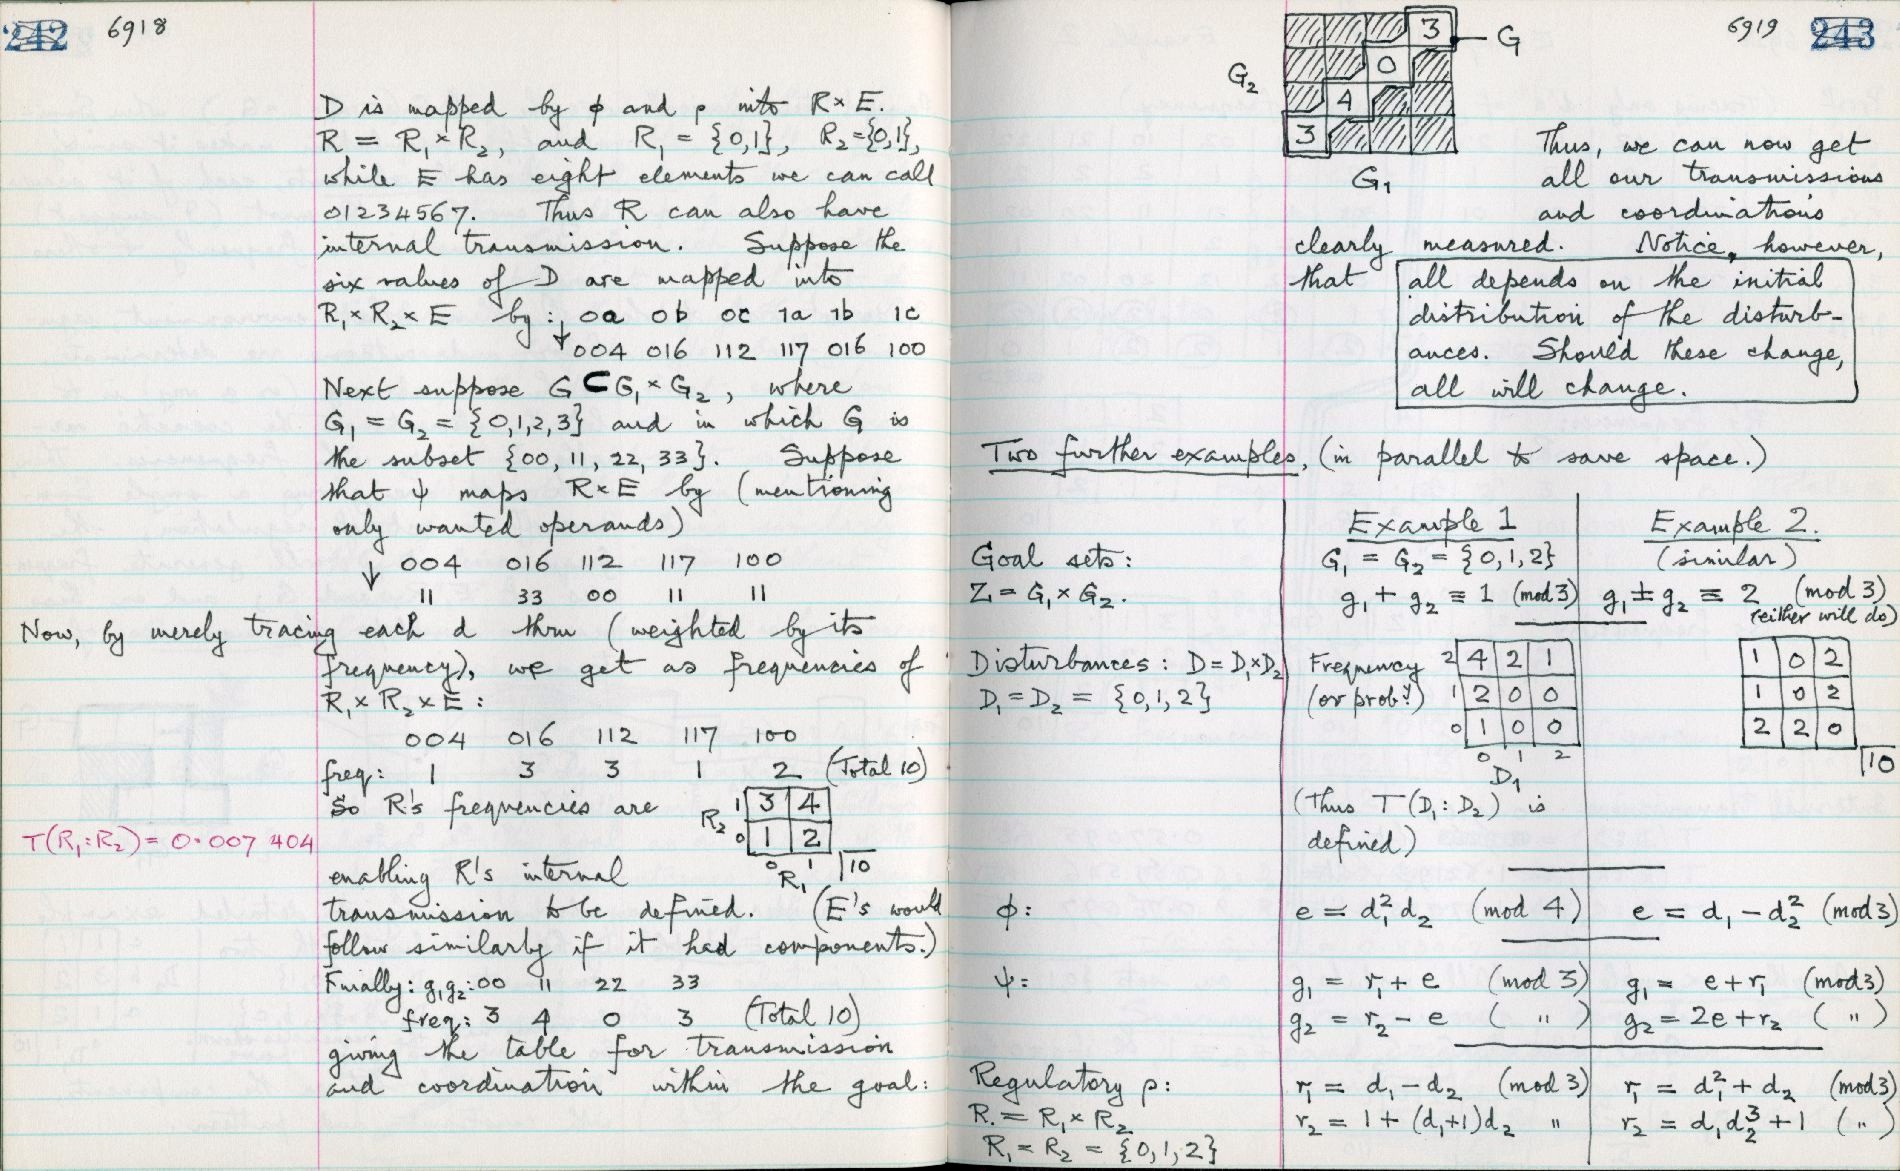 242 6918
D is mapped by ϕ and ρ into R×E.
R = R₁×R₂, and R₁ = {0,1}, R₂={0,1},
while E has eight elements we can call
01234567. Thus R can also have
internal transmission. Suppose the
six values of D are mapped into
R₁×R₂×E by: ↓ 0a 0b 0c 1a 1b 1c
004 016 112 117 016 100
Next suppose G ⊂ G₁×G₂, where
G₁ = G₂ = {0,1,2,3} and in which G is
the subset {00, 11, 22, 33}. Suppose
that ψ maps R×E by (mentioning
only wanted operands)
↓ 004 016 112 117 100
11 33 00 11 11
Now, by merely tracing each d thru (weighted by its
frequency), we get as frequencies of
R₁×R₂×E:
004 016 112 117 100
freq: 1 3 3 1 2 (Total 10)
So R's frequencies are
R₂ 1 3 4
0 1 2
0 1 10
R₁
T(R₁:R₂) = 0·007 404
enabling R's internal
transmission to be defined. (E's would
follow similarly if it had components.)
Finally: g₁g₂: 00 11 22 33
freq: 3 4 0 3 (Total 10)
giving the table for transmission
and coordination within the goal:
6919 243
3 G
G₂ 0
4
3
G₁
Thus, we can now get
all our transmissions
and coordinations
clearly measured. Notice, however,
that all depends on the initial
distribution of the disturb-
ances. Should these change,
all will change.
Two further examples, (in parallel to save space.)
Example 1 Example 2.
Goal sets: G₁ = G₂ = {0,1,2} (similar)
Z = G₁×G₂. g₁ + g₂ ≡ 1 (mod 3) g₁ ± g₂ ≡ 2 (mod 3)
(either will do)
Disturbances: D = D₁×D₂ Frequency 2 4 2 1 1 0 2
D₁ = D₂ = {0,1,2} (or prob.y) 1 2 0 0 1 0 2
0 1 0 0 2 2 0
0 1 2 10
D₁
(Thus T(D₁:D₂) is
defined)
ϕ: e = d₁²d₂ (mod 4) e = d₁ − d₂² (mod 3)
ψ: g₁ = r₁ + e (mod 3) g₁ = e + r₁ (mod 3)
g₂ = r₂ − e ( " ) g₂ = 2e + r₂ ( " )
Regulatory ρ: r₁ = d₁ − d₂ (mod 3) r₁ = d₁² + d₂ (mod 3)
R = R₁×R₂ r₂ = 1 + (d₁+1)d₂ " r₂ = d₁d₂³ + 1 ( " )
R₁ = R₂ = {0,1,2}